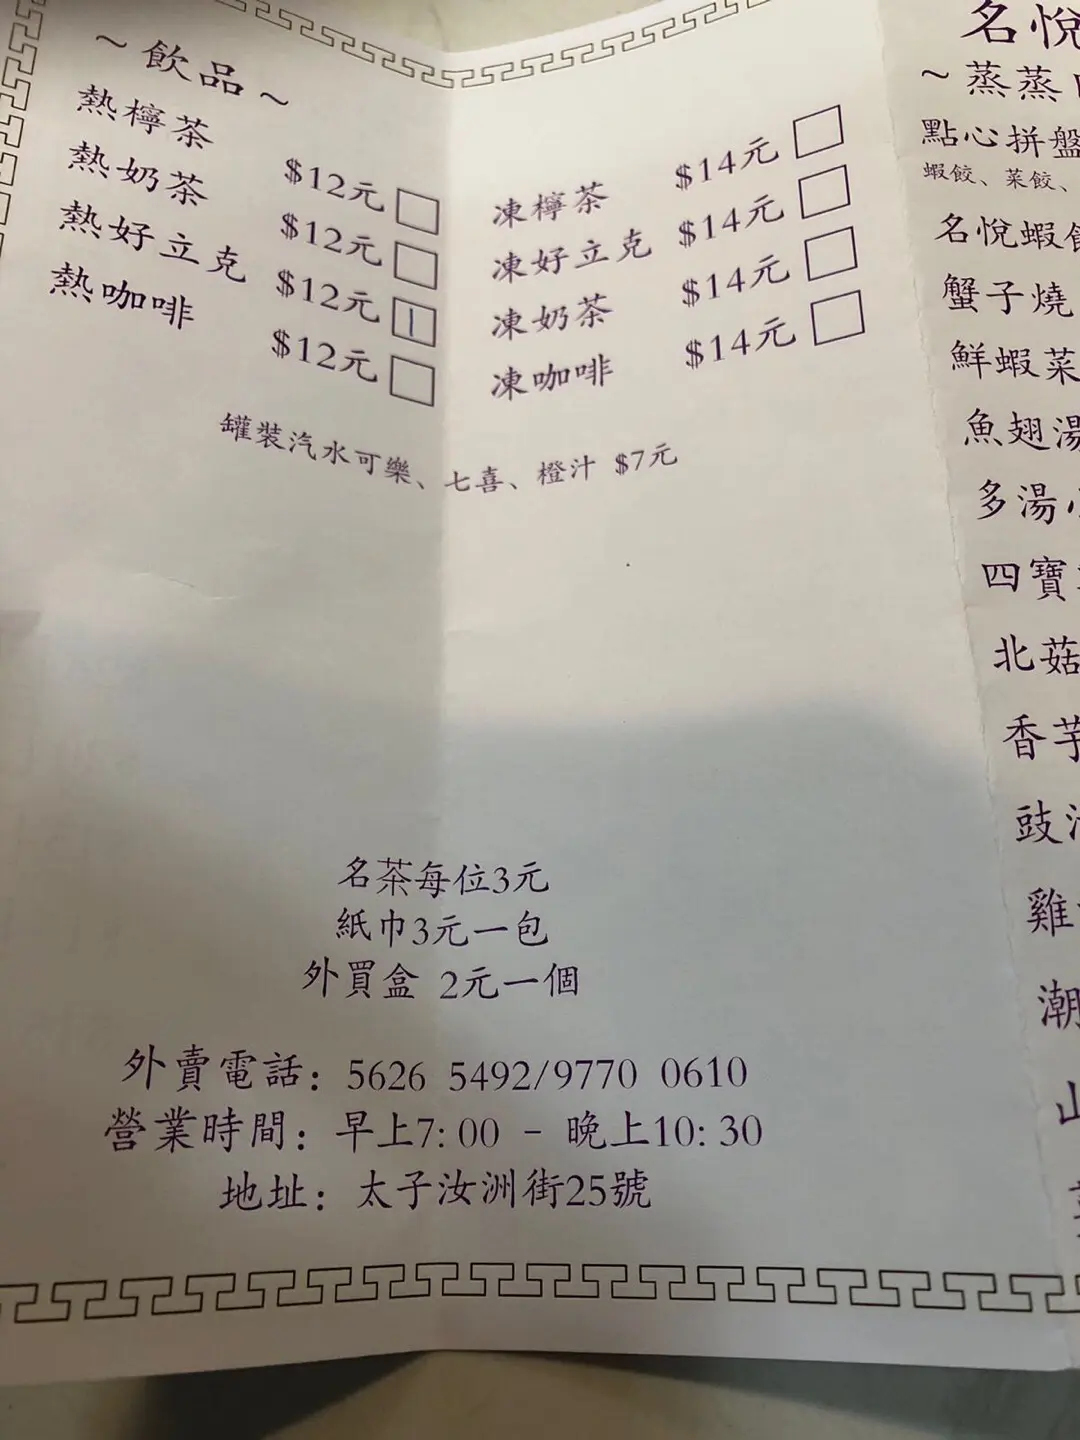 ~飲品~
熱檸茶 $12元
熱奶茶 $12元
熱好立克 $12元 1
熱咖啡 $12元
凍檸茶 $14元
凍好立克 $14元
凍奶茶 $14元
凍咖啡 $14元
罐裝汽水可樂、七喜、橙汁 $7元
名茶每位3元
紙巾3元一包
外買盒 2元一個
外賣電話: 5626 5492/9770 0610
營業時間: 早上7:00 - 晚上10:30
地址: 太子汝洲街25號
名悅
~蒸蒸
點心拼盤
蝦餃、菜餃、
名悅蝦餃
蟹子燒
鮮蝦菜
魚翅湯
多湯
四寶
北菇
香芋
豉
雞
潮